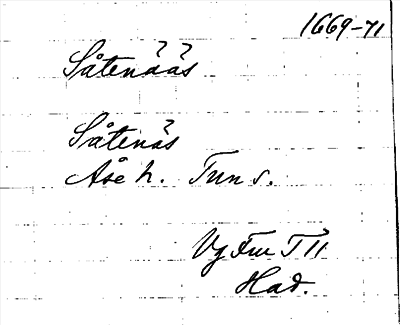 1669-71
Såtenääs
Såtenäs
Åse h. Tun s.
Vg Fru T 11
Had.